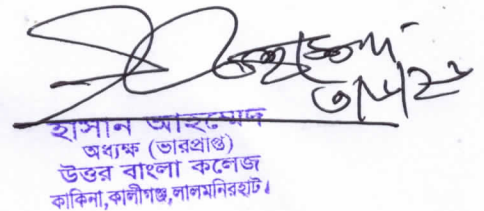 হাসান আহমেদ
অধ্যক্ষ (ভারপ্রাপ্ত)
উত্তর বাংলা কলেজ
কাকিনা,কালীগঞ্জ,লালমনিরহাট।